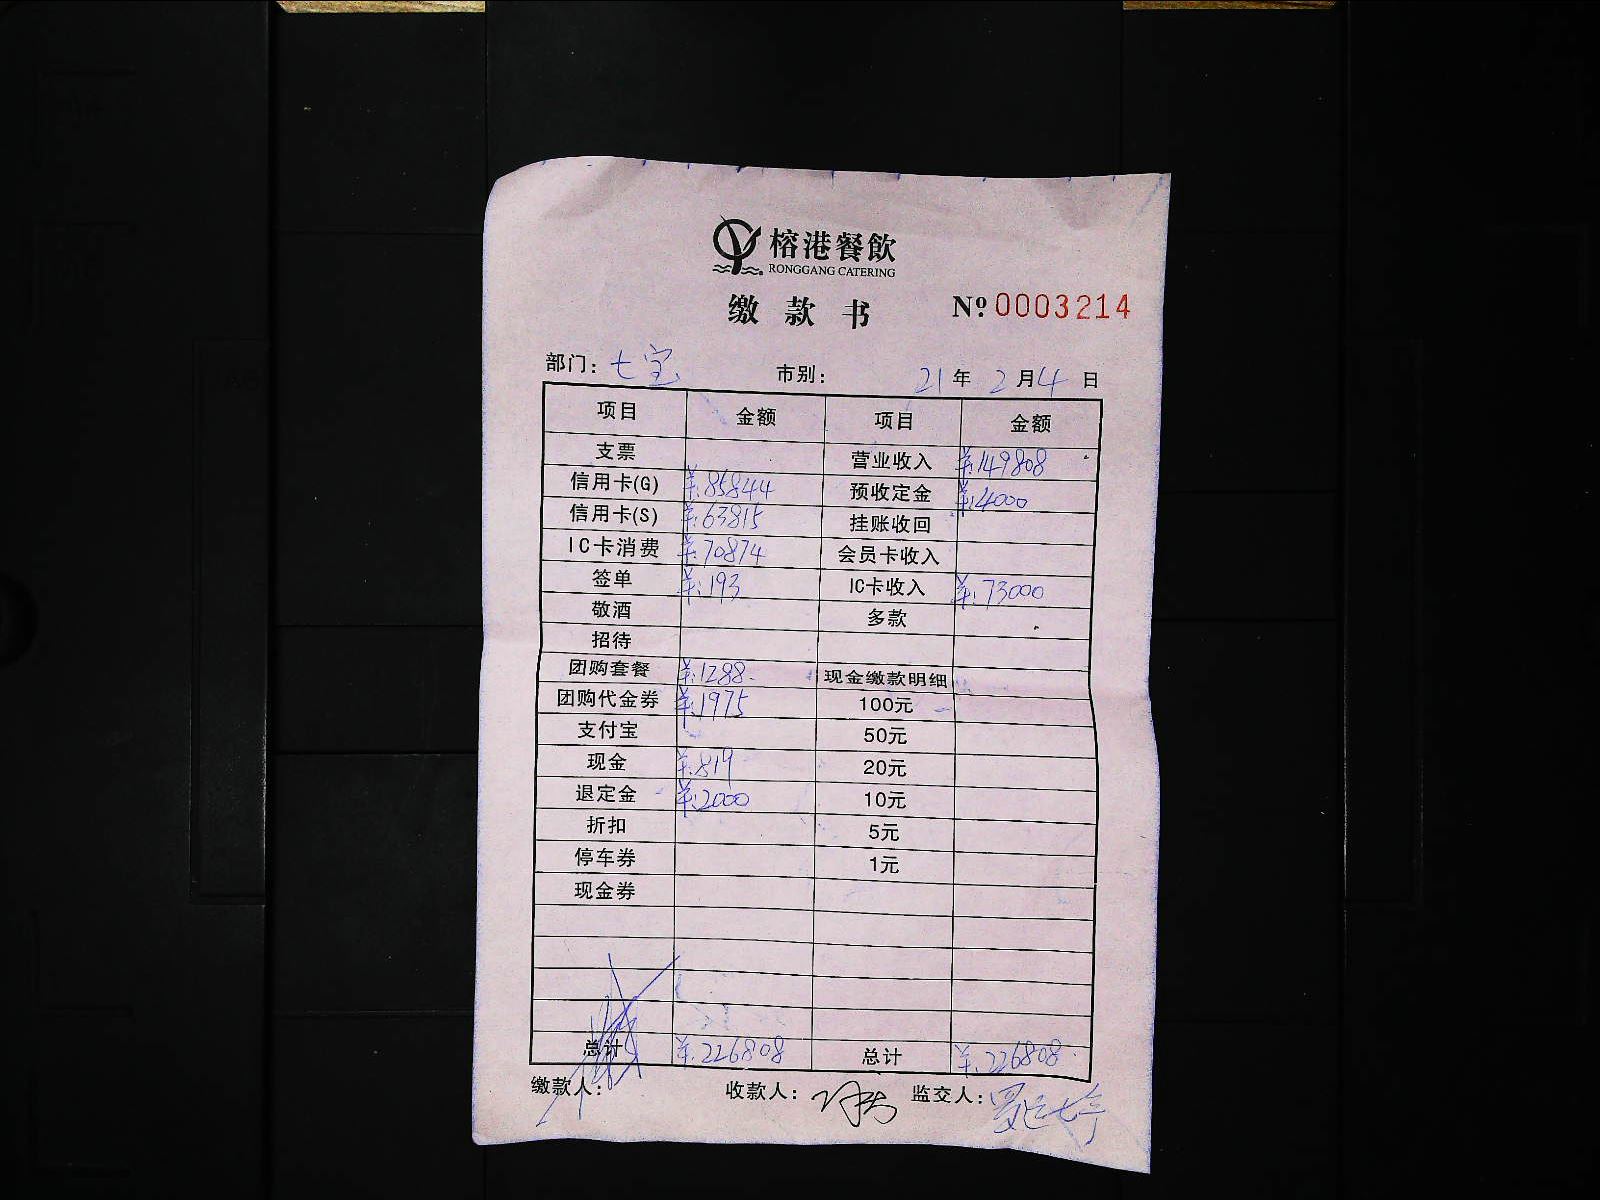 榕港餐飲
RONGGANG CATERING
缴款书 №0003214
部门：七宝 市别： 21年2月4日
项目 金额 项目 金额
支票 营业收入 ¥:149808
信用卡(G) ¥:85844 预收定金 ¥:4000
信用卡(S) ¥:63815 挂账收回
IC卡消费 ¥:70874 会员卡收入
签单 ¥:193 IC卡收入 ¥:73000
敬酒 多款
招待
团购套餐 ¥:1288 现金缴款明细
团购代金券 ¥:1975 100元
支付宝 50元
现金 ¥:819 20元
退定金 ¥:2000 10元
折扣 5元
停车券 1元
现金券
总计 ¥:226808 总计 ¥:226808
缴款人： 收款人： 监交人：